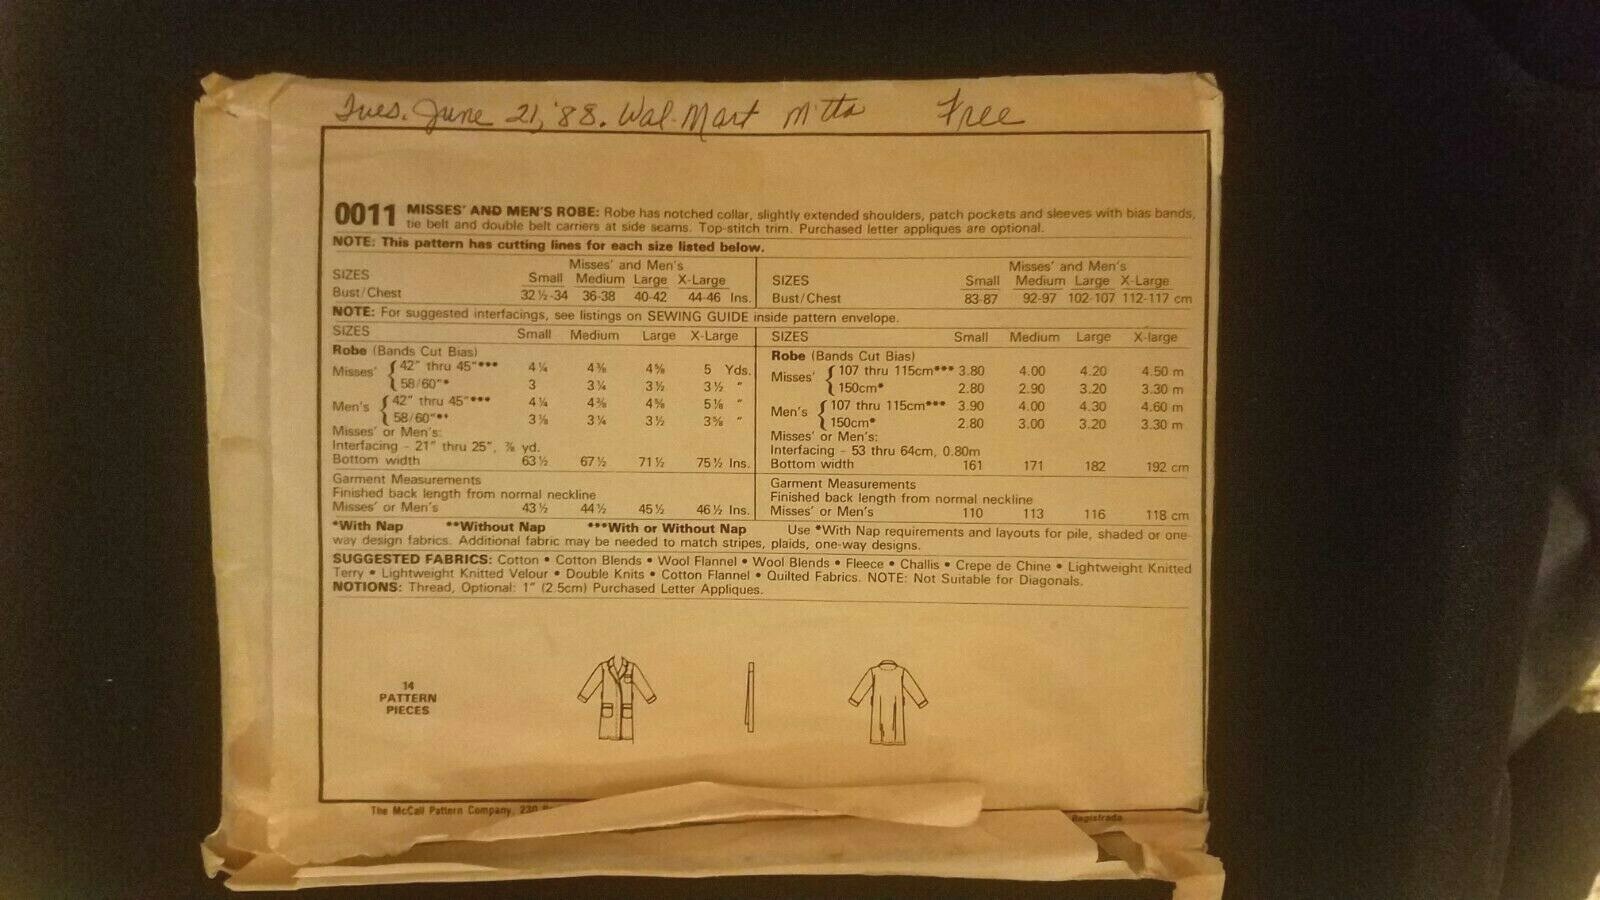 Tues. June 21, '88. Wal-Mart Free
0011 MISSES' AND MEN'S ROBE: Robe has notched collar, slightly extended shoulders, patch pockets and sleeves with bias bands,
tie belt and double belt carriers at side seams. Top-stitch trim. Purchased letter appliques are optional.
NOTE: This pattern has cutting lines for each size listed below.
Misses' and Men's
SIZES Small Medium Large X-Large
Bust/Chest 32 ½-34 36-38 40-42 44-46 Ins.
Misses' and Men's
SIZES Small Medium Large X-Large
Bust/Chest 83-87 92-97 102-107 112-117 cm
NOTE: For suggested interfacings, see listings on SEWING GUIDE inside pattern envelope.
SIZES Small Medium Large X-Large
Robe (Bands Cut Bias)
Misses' { 42" thru 45"*** 4 ¼ 4 ⅜ 4 ⅝ 5 Yds.
58/60"* 3 3 ¼ 3 ½ 3 ½ "
Men's { 42" thru 45"*** 4 ¼ 4 ⅜ 4 ⅝ 5 ⅛ "
58/60"** 3 ⅛ 3 ¼ 3 ½ 3 ⅝ "
Misses' or Men's:
Interfacing - 21" thru 25", ⅞ yd.
Bottom width 63 ½ 67 ½ 71 ½ 75 ½ Ins.
Garment Measurements
Finished back length from normal neckline
Misses' or Men's 43 ½ 44 ½ 45 ½ 46 ½ Ins.
SIZES Small Medium Large X-large
Robe (Bands Cut Bias)
Misses' { 107 thru 115cm*** 3.80 4.00 4.20 4.50 m
150cm* 2.80 2.90 3.20 3.30 m
Men's { 107 thru 115cm*** 3.90 4.00 4.30 4.60 m
150cm* 2.80 3.00 3.20 3.30 m
Misses' or Men's:
Interfacing - 53 thru 64cm, 0.80m
Bottom width 161 171 182 192 cm
Garment Measurements
Finished back length from normal neckline
Misses' or Men's 110 113 116 118 cm
*With Nap **Without Nap ***With or Without Nap Use *With Nap requirements and layouts for pile, shaded or one-
way design fabrics. Additional fabric may be needed to match stripes, plaids, one-way designs.
SUGGESTED FABRICS: Cotton • Cotton Blends • Wool Flannel • Wool Blends • Fleece • Challis • Crepe de Chine • Lightweight Knitted
Terry • Lightweight Knitted Velour • Double Knits • Cotton Flannel • Quilted Fabrics. NOTE: Not Suitable for Diagonals.
NOTIONS: Thread, Optional: 1" (2.5cm) Purchased Letter Appliques.
14
PATTERN
PIECES
The McCall Pattern Company, 230
Registrada